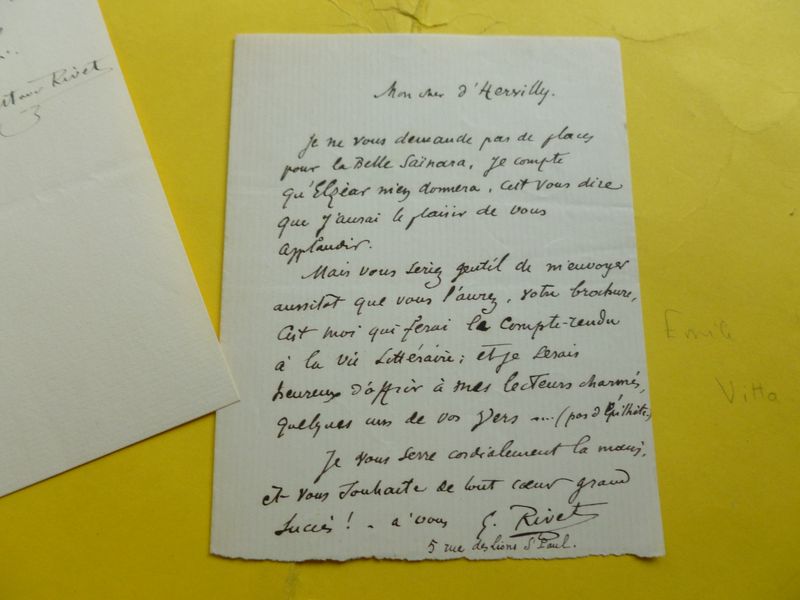 Gustave Rivet
Mon cher d'Hervilly.
Je ne vous demande pas de places
pour la Belle Saïnara, Je compte
qu'Elzéar m'en donnera, c'est vous dire
que J'aurai le plaisir de vous
applaudir.
Mais vous seriez gentil de m'envoyer
aussitot que vous l'aurez, votre brochure,
C'est moi qui ferai le compte-rendu
à la vie Littéraire; et je serais
heureux d'offrir à mes lecteurs charmés,
quelques uns de vos vers .... (pas d'Épithète.)
Je vous serre cordialement la main,
et vous souhaite de tout cœur grand
succès! - a vous G. Rivet
5 rue des Lions St Paul.
Emile
Vitta